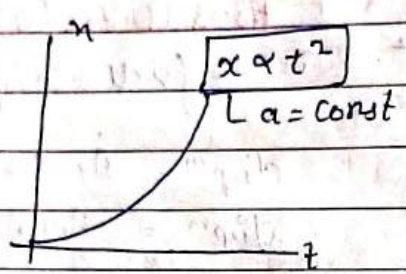 x
x ∝ t²
a = const
t